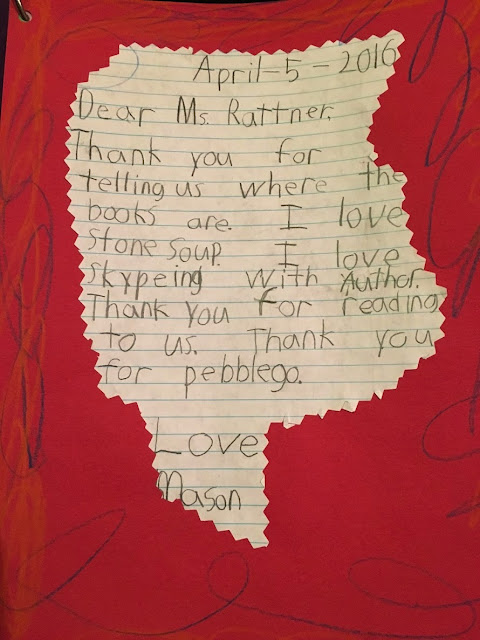 April-5-2016
Dear Ms. Rattner.
Thank you for
telling us where the
books are. I love
Stone Soup. I love
Skypeing with Author.
Thank you for reading
to us. Thank you
for pebblego.
Love
Mason